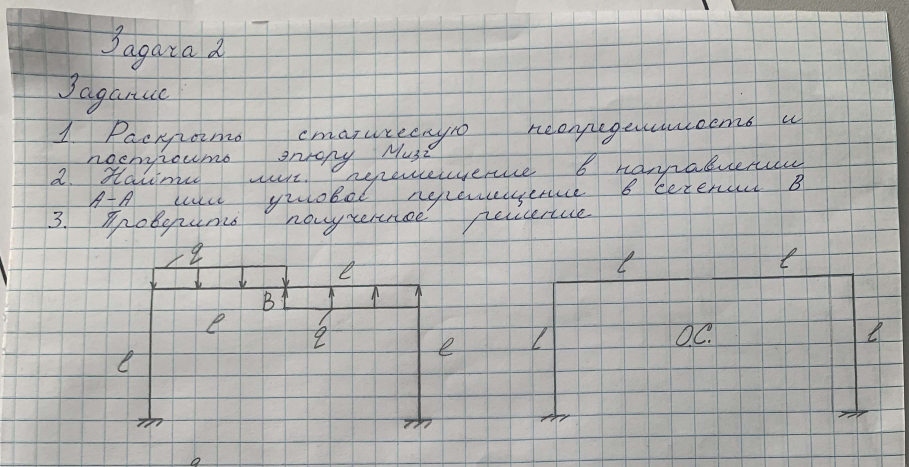 Задача 2
Задание
1. Раскрыть статическую неопределимость и
построить эпюру Mизг
2. Найти лин. перемещение в направлении
А-А или угловое перемещение в сечении В
3. Проверить полученное решение
q
l
l
l
B
l
q
О.С.
l
l
l
l